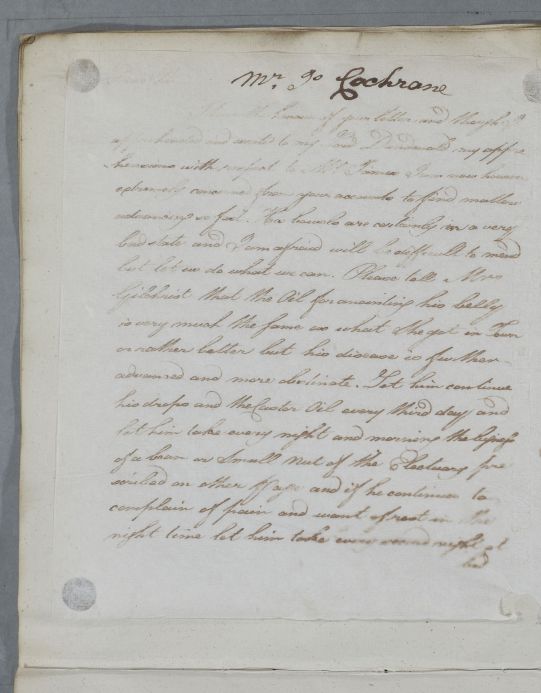 Mr. Jo Cochrane
of your letter and though I
apprehended and wrote to my Lord Dundonald my appre
hensions with respect to Mr James I am now however
extremely concerned from your accounts to find matters
advancing so far. His bowels are certainly in a very
bad state and I am afraid will be difficult to mend
but let us do what we can. Please tell Mrs
Gilchrist that the Oil for anointing his belly
is very much the same as what she got in Town
or rather better but his disease is further
advanced and more obstinate. Let him continue
his drops and the Castor Oil every third day and
let him take every night and morning the bigness
of a bean or small nut of the Electuary pre
scribed on other Page and if he continues to
complain of pain and want of rest in the
night time let him take every second night at
bed